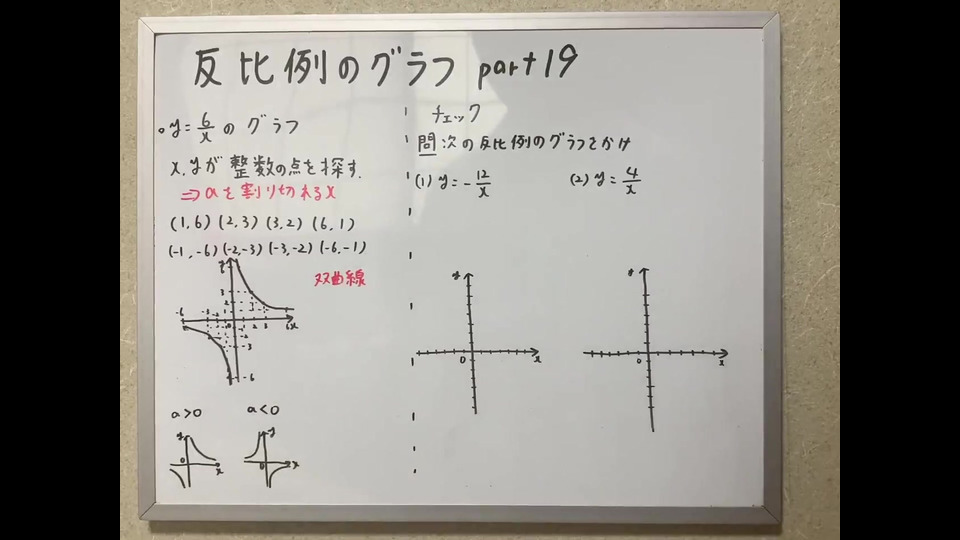 反比例のグラフ part19
。y=6/x のグラフ
x, yが整数の点を探す.
⇒aを割り切れるx
(1,6) (2,3) (3,2) (6,1)
(-1,-6) (-2,-3) (-3,-2) (-6,-1)
双曲線
a>0
a<0
チェック
問 次の反比例のグラフをかけ
(1) y=-12/x
(2) y=4/x
y
0
x
y
0
x